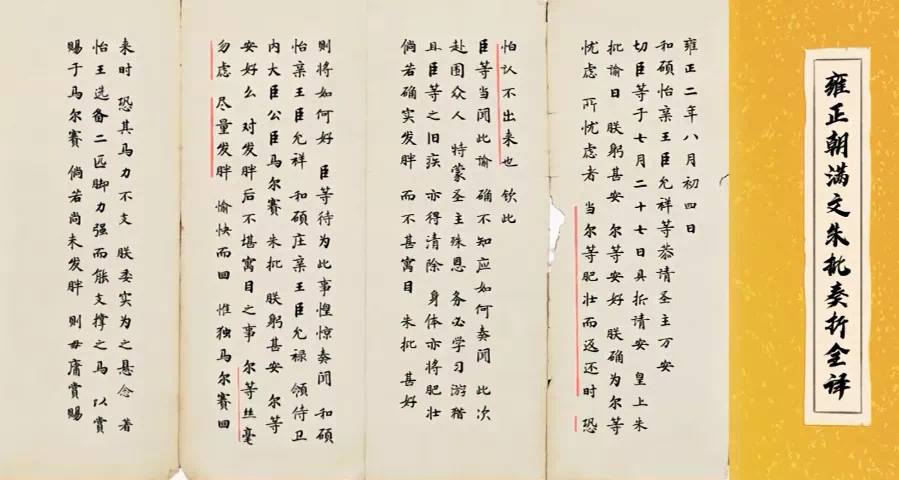 雍正朝满文朱批奏折全译
雍正二年八月初四日
和硕怡亲王臣允祥等恭请圣主万安
切臣等于七月二十七日具折请安 皇上朱
批谕曰 朕躬甚安 尔等安好 朕确为尔等
忧虑 所忧虑者 当尔等肥壮而返还时 恐
怕认不出来也 钦此
臣等当闻此谕 确不知应如何奏闻 此次
赴围众人 特蒙圣主殊恩 务必学习游猎
且臣等之旧疾 亦得清除 身体亦将肥壮
倘若确实发胖 而不甚寓目 朱批 甚好
则将如何好 臣等待为此事惶惊奏闻 和硕
怡亲王臣允祥 和硕庄亲王臣允禄 领侍卫
内大臣公臣马尔赛 朱批 朕躬甚安 尔等
安好么 对发胖后不堪寓目之事 尔等丝毫
勿虑 尽量发胖 愉快而回 惟独马尔赛回
来时 恐其马力不支 朕委实为之悬念 著
怡王选备二匹脚力强而能支撑之马 以赏
赐于马尔赛 倘若尚未发胖 则毋庸赏赐